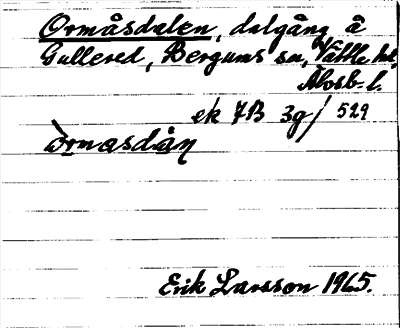 Ormåsdalen, dalgång å
Gullered, Bergums sn, Vättle hd,
Älvsb. l.
ek 7B 3g/ 529
òrmasdàn
Erik Larsson 1965.